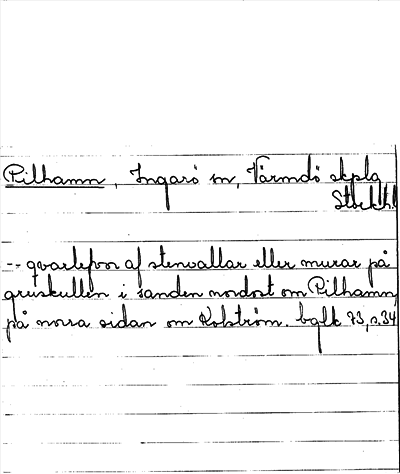 Pilhamn, Ingarö sn, Värmdö skplg
Stockh.l
-- qvarlefvor af stenvallar eller murar på
gruskullen i sanden nordost om Pilhamn,
på norra sidan om Kolström. bglt 73, s. 34